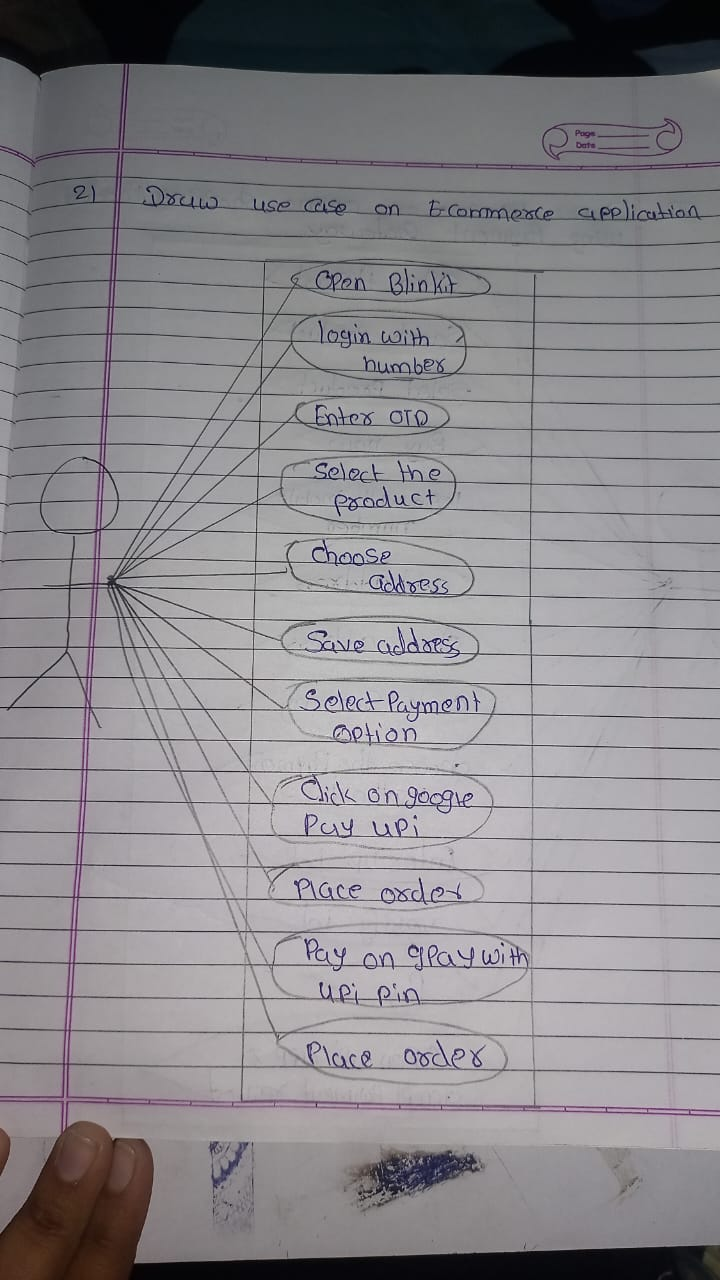 Page
Date
21 Draw use case on E-commerce application
Open Blinkit
login with
number
Enter OTP
Select the
product
Choose
address
Save address
Select Payment
option
Click on google
Pay upi
Place order
Pay on gpay with
upi pin
Place order